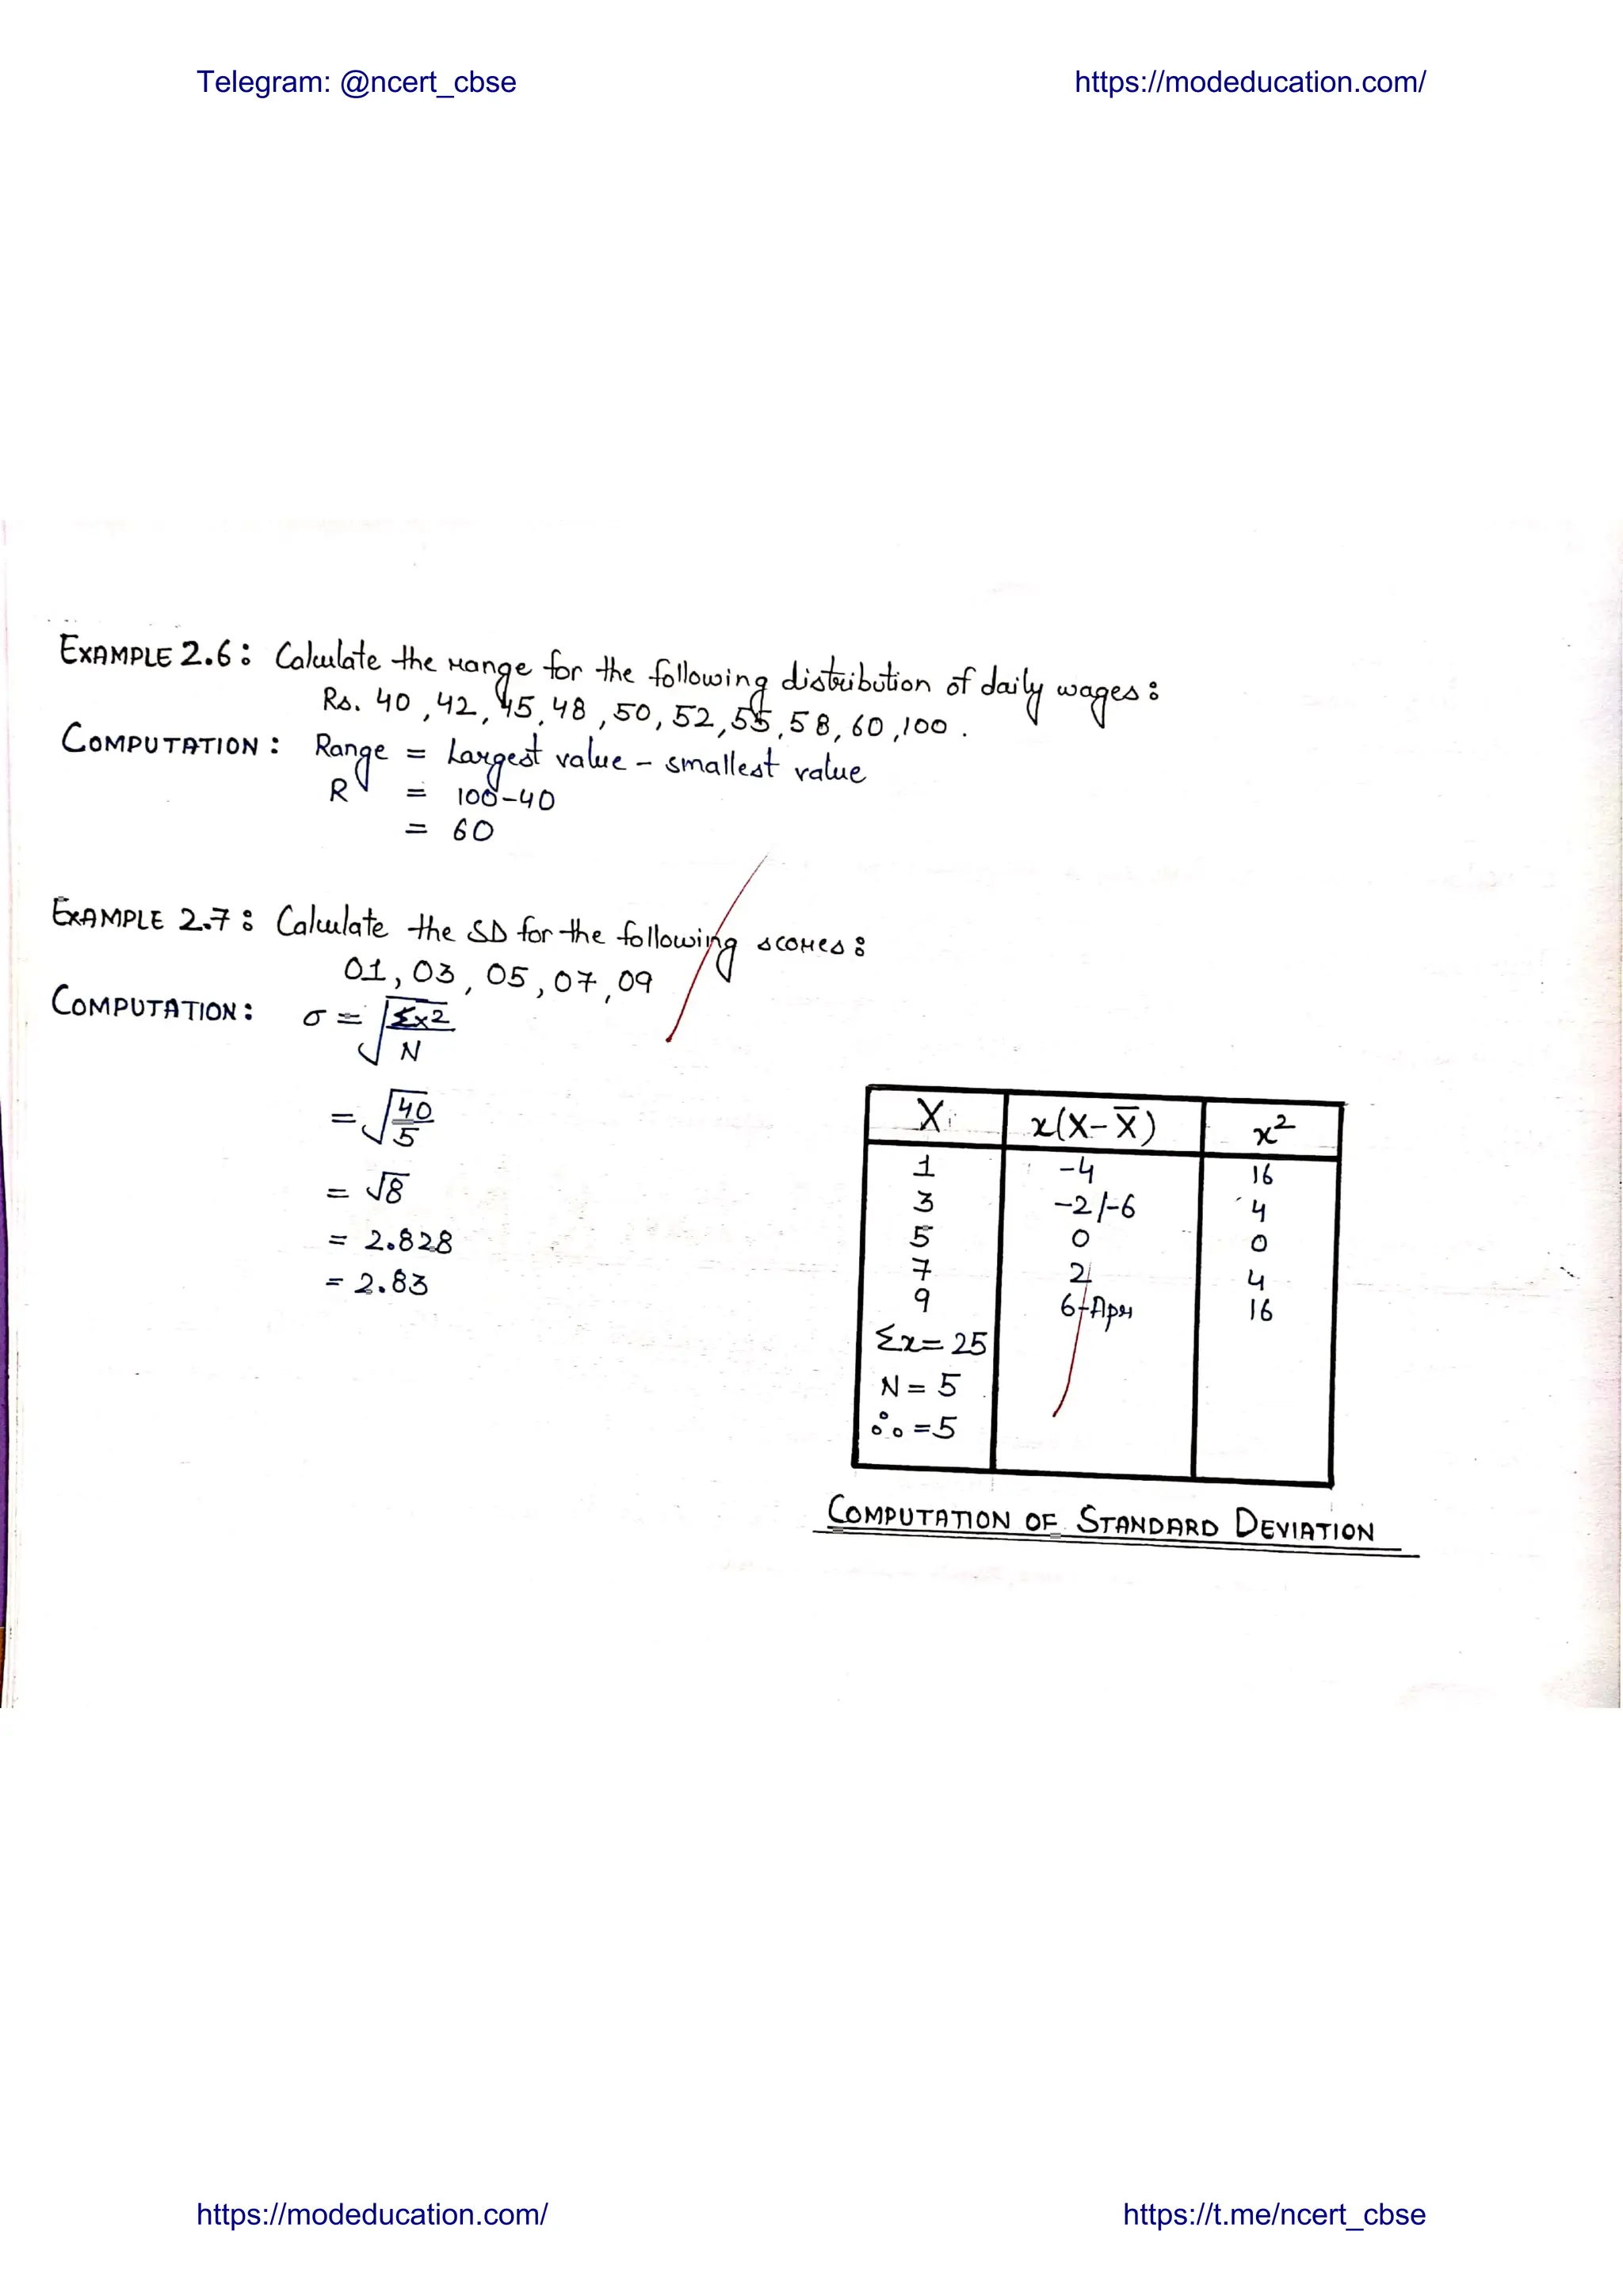 Telegram: @ncert_cbse https://modeducation.com/
EXAMPLE 2.6: Calculate the range for the following distribution of daily wages:
Rs. 40, 42, 45, 48, 50, 52, 55, 58, 60, 100.
COMPUTATION: Range = Largest value - smallest value
R = 100-40
= 60
EXAMPLE 2.7: Calculate the SD for the following scores:
01, 03, 05, 07, 09
COMPUTATION: σ = √Σx2/N
= √40/5
= √8
= 2.828
= 2.83
X x(X-X̄) x²
1 -4 16
3 -2/-6 4
5 0 0
7 2 4
9 6-Apr 16
Σx= 25
N = 5
∴ =5
COMPUTATION OF STANDARD DEVIATION
https://modeducation.com/ https://t.me/ncert_cbse